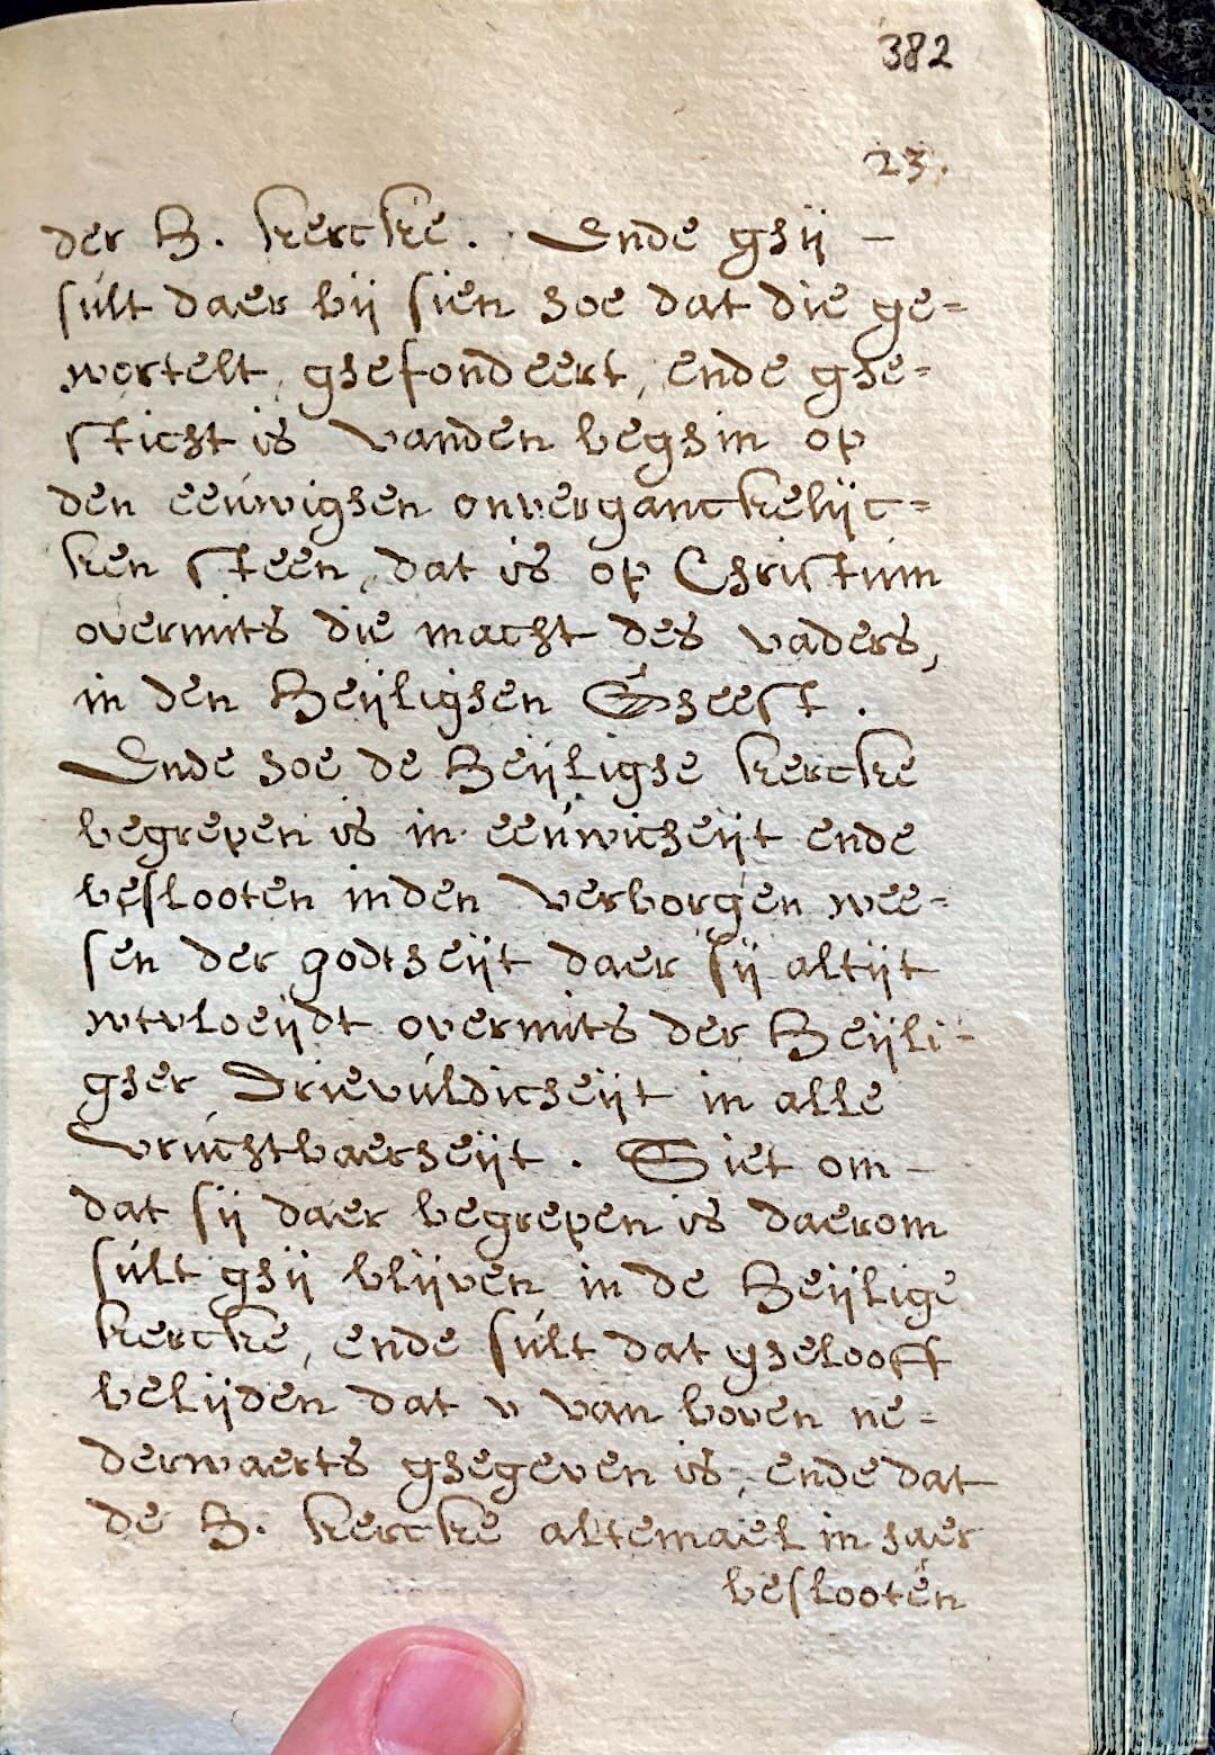 382
23.
der H. kercke. Ende ghij –
sult daer bij sien hoe dat die ge=
wortelt, ghefondeert, ende ghe=
sticht is vanden beghin op
den eeuwighen onverganckelijc=
ken steen, dat is op Christum
overmits die macht des vaders,
in den Heijlighen Gheest.
Ende hoe de Heijlighe kercke
begrepen is in eeuwicheijt ende
beslooten inden verborgen wee=
sen der godtheijt daer sij altijt
wtvloeijdt overmits der Heijli=
gher Drievuldicheijt in alle
vruchtbaerheijt. Siet om–
dat sij daer begrepen is daerom
sult ghij blijven in de Heijlige
kercke, ende sult dat ghelooff
belijden dat v van boven ne=
derwaerts ghegeven is, ende dat
de H. kercke altemael in haer
beslooten